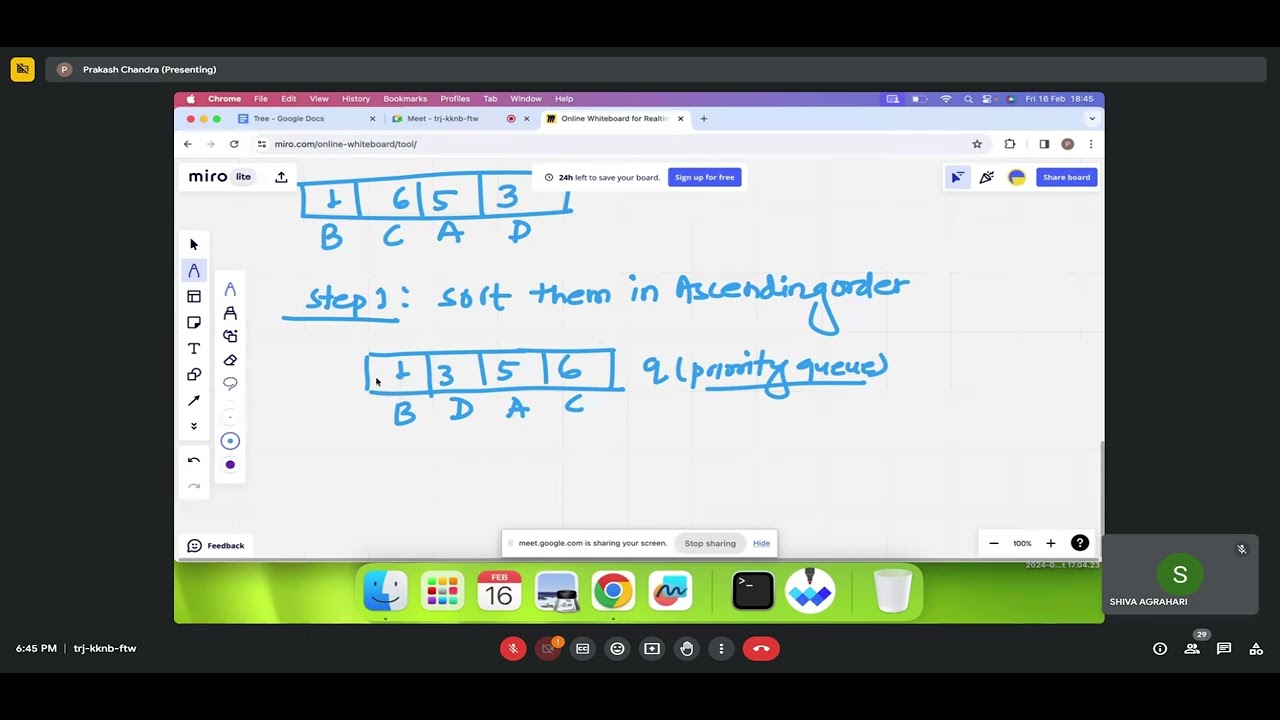 Prakash Chandra (Presenting)
Chrome File Edit View History Bookmarks Profiles Tab Window Help Fri 16 Feb 18:45
Tree - Google Docs Meet - trj-kknb-ftw Online Whiteboard for Realtim
miro.com/online-whiteboard/tool/ P
miro lite 24h left to save your board. Sign up for free Share board
1 6 5 3
B C A D
step 1: sort them in Ascending order
1 3 5 6 q (priority queue)
B D A C
T
Feedback meet.google.com is sharing your screen. Stop sharing Hide 100% ?
2024-0...t 17.04.23
FEB
16
S
SHIVA AGRAHARI
29
6:45 PM | trj-kknb-ftw